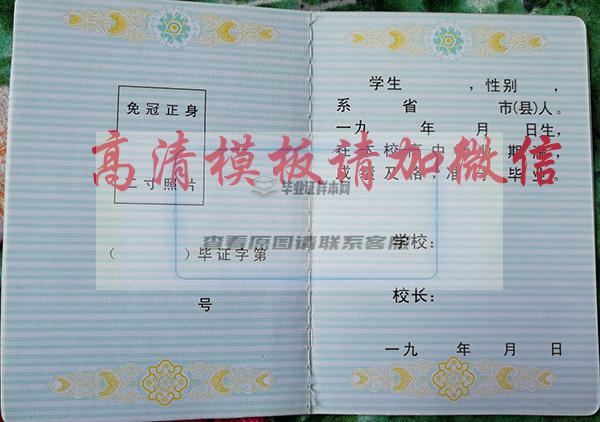 免冠正身
二寸照片
（　　　）毕证字第
号
学生　　　，性别　，
系　　省　　　市(县)人。
一九　　年　　月　　日生，
在本校高中　业期满，
成绩及格，准予毕业。
学校：
校长：
一九　　年　　月　　日
高清模板请加微信
毕业证样本网
查看原图请联系客服